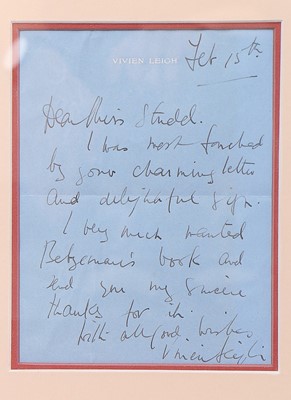 VIVIEN LEIGH
Feb 15th.
Dear Miss Studd.
I was most touched
by your charming letter
and delightful gift.
I very much wanted
Betjeman's book and
send you my sincere
thanks for it.
With all good wishes
Vivien Leigh